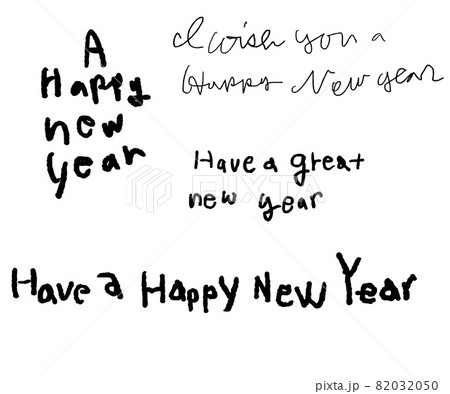 A
Happy
new
year
I wish you a
Happy New year
Have a great
new year
Have a Happy New Year
PIXTA
pixta.jp - 82032050